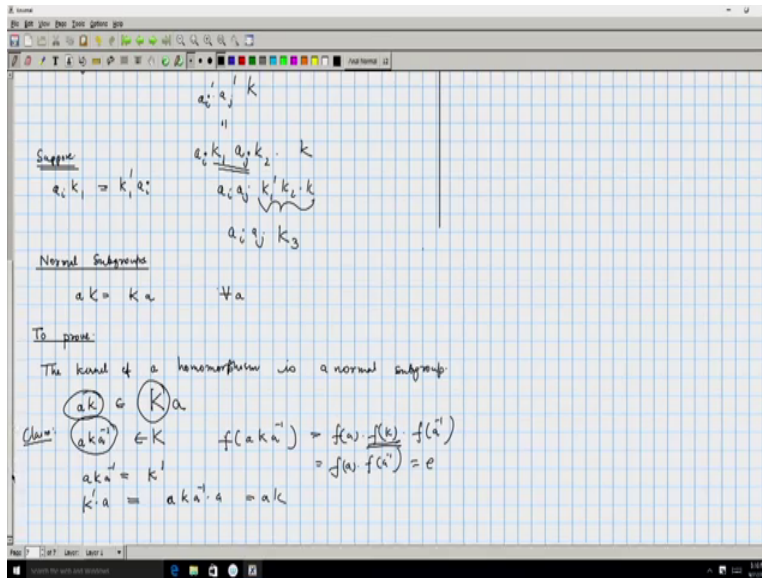 Journal
File Edit View Page Tools Options Help
Arial Normal 12
aᵢ' aⱼ' k
"
aᵢ k₁ aⱼ k₂ · k
Suppose
aᵢ k₁ = k₁' aᵢ
aᵢ aⱼ k₁' k₂ · k
aᵢ aⱼ k₃
Normal Subgroups
aK = Ka ∀a
To prove:
The kernel of a homomorphism is a normal subgroup.
ak ∈ Ka
Claim: aka⁻¹ ∈ K f(aka⁻¹) = f(a) · f(k) · f(a⁻¹)
= f(a) · f(a⁻¹) = e
aka⁻¹ = k'
k'·a = aka⁻¹·a = ak
Page 7 of 7 Layer: Layer 1
Search the web and Windows